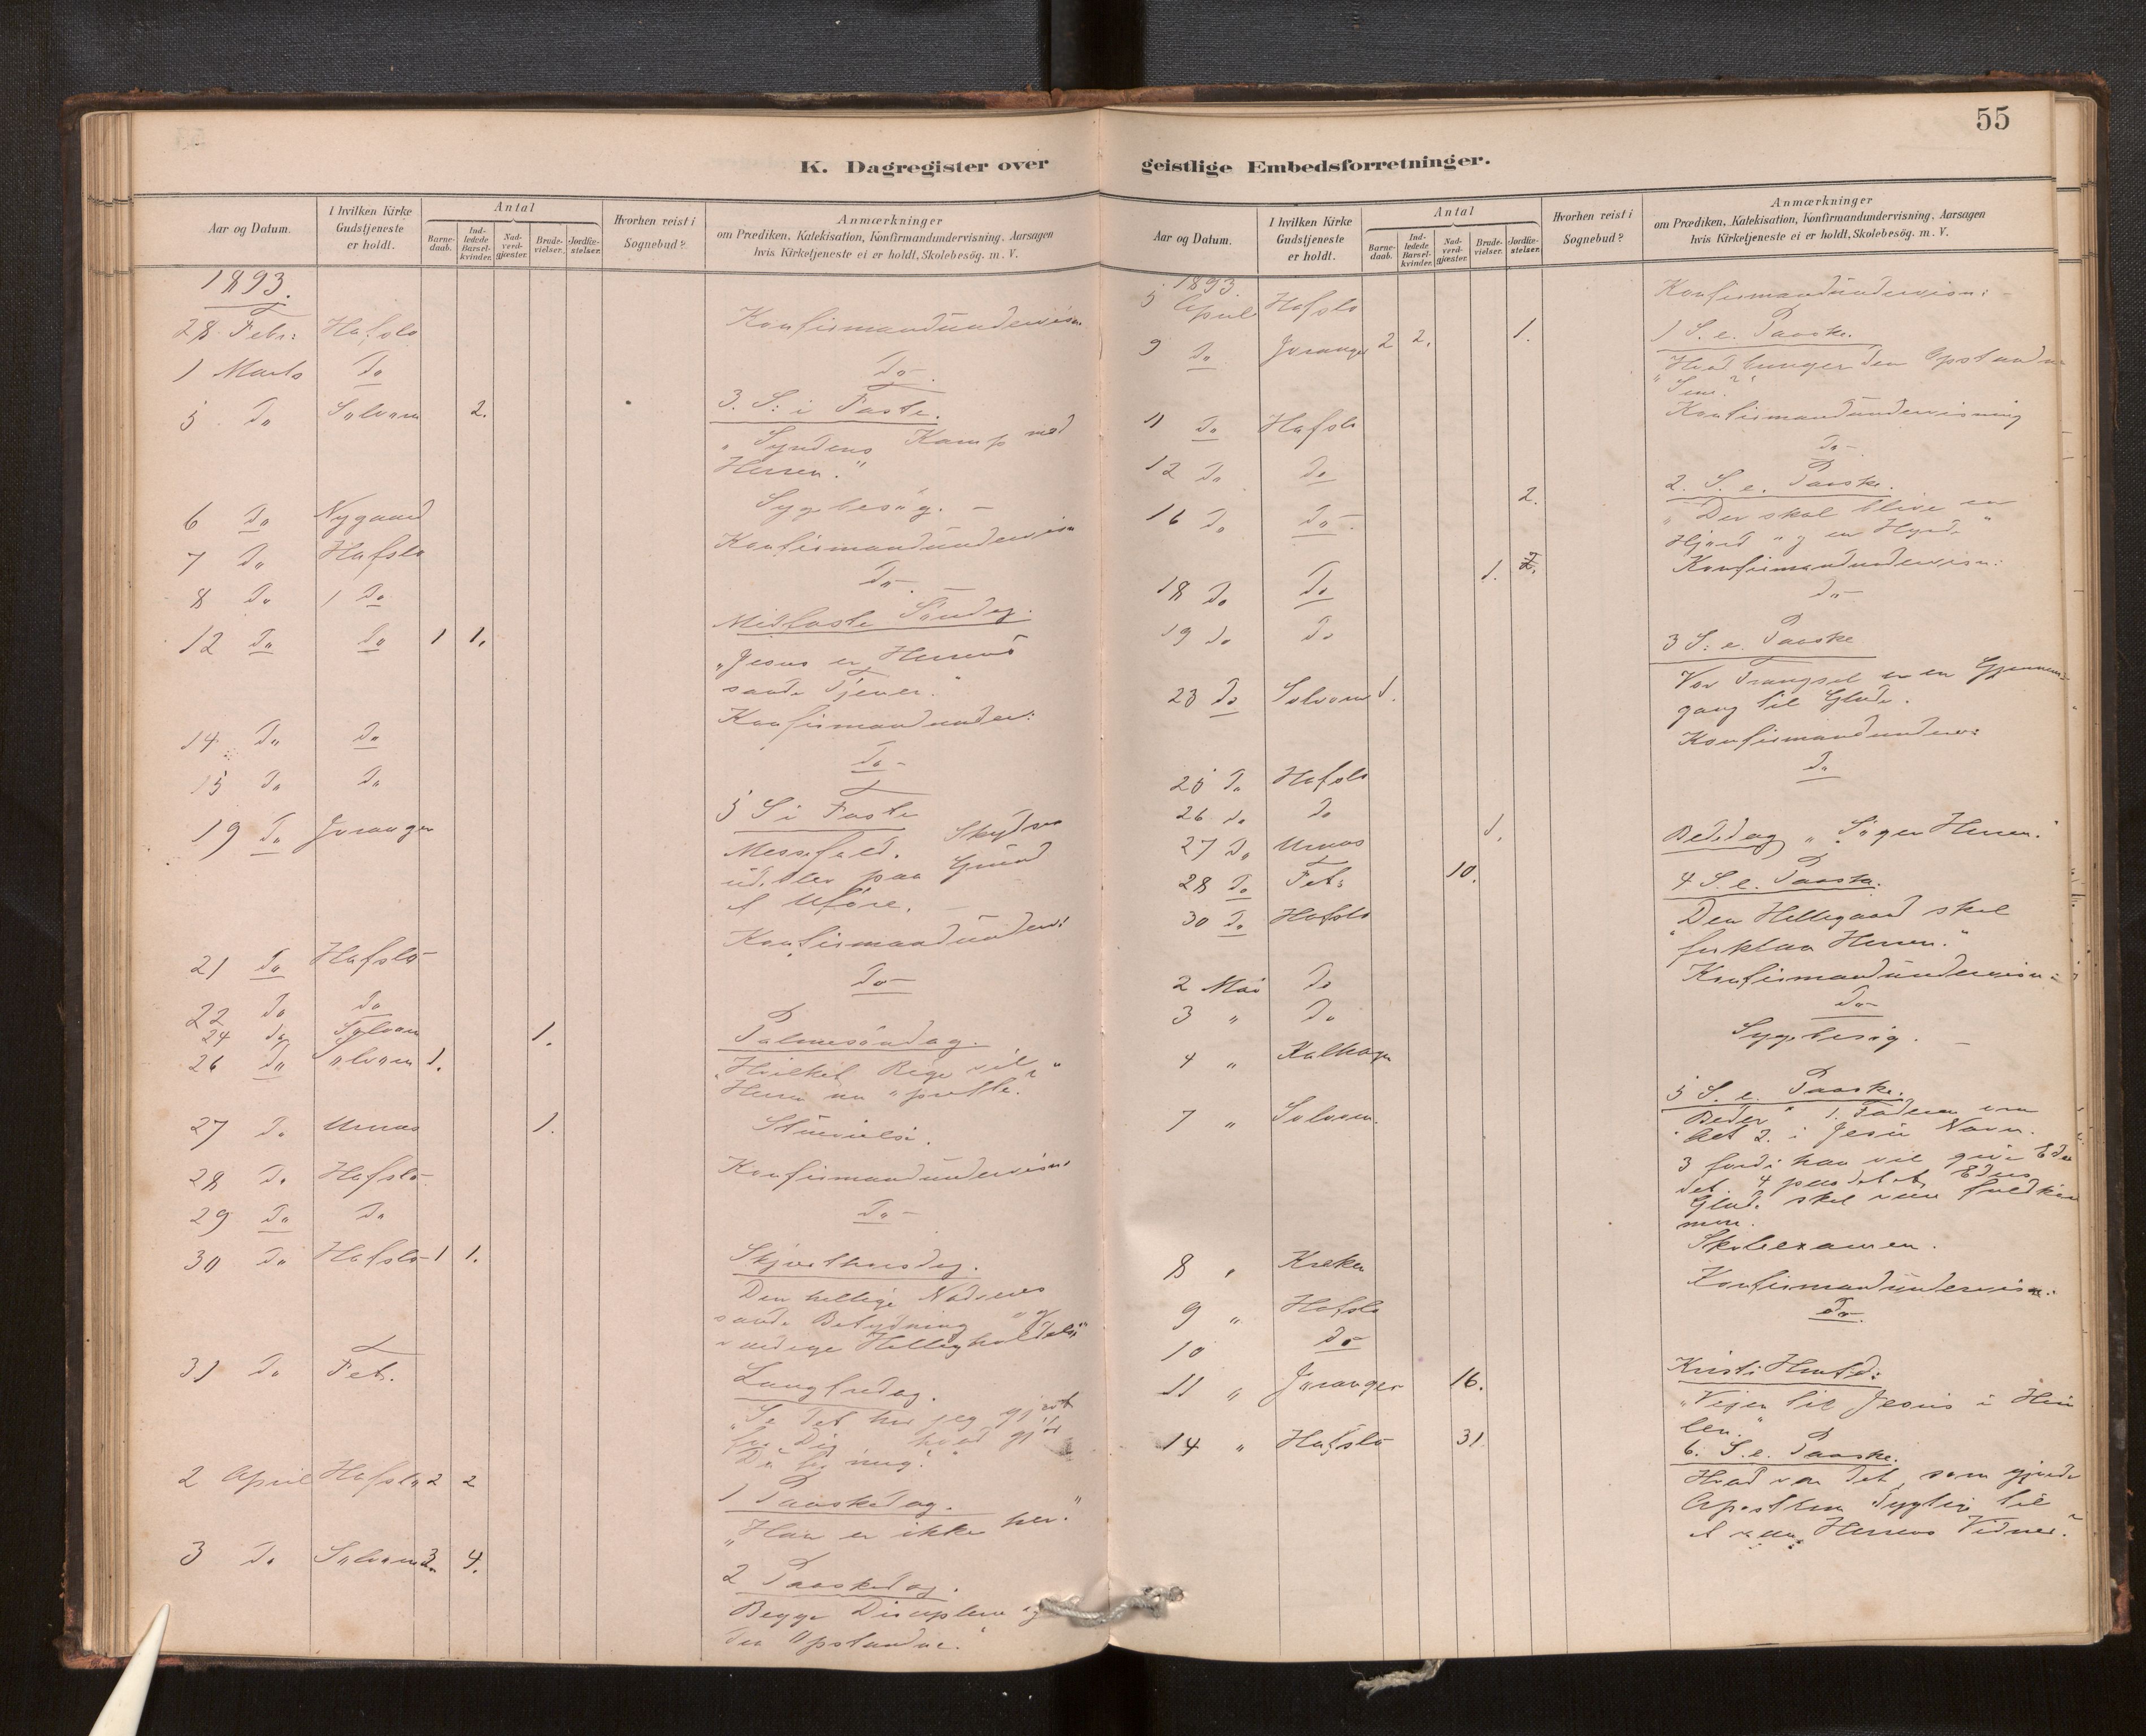 55
K. Dagregister over geistlige Embedsforretninger.
Aar og Datum.
I hvilken Kirke Gudstjeneste er holdt.
Antal
Barne-daab.
Ind-ledede Barsel-kvinder.
Nad-verd-gjæster.
Brude-vielser.
Jordfæ-stelser.
Hvorhen reist i Sognebud?
Anmærkninger
om Prædiken, Katekisation, Konfirmandundervisning, Aarsagen
hvis Kirketjeneste ei er holdt, Skolebesög. m. V.
1893.
28. Febr: Hafslo Konfirmandundervisn
1 Marts do do
5 do Solvorn 2. 3. S: i Faste.
„Syndens Kamp med
Herren."
6 do Nygaard Sygebesög.
7 do Hafslo Konfirmandundervisn
8 do do do
12 do do 1 1. Midfaste Söndag.
„Jesus er Herrens
sande Tjener."
14 do do Konfirmandunder:
15 do do do
19 do Joranger 5 S i Faste
Messefald. Skydsen
udeblev paa Grund
af Uföre.
21 do Hafslo Konfirmandunderv:
22 do do do
24 do Solvorn 1.
26 do Solvorn 1. Palmesöndag.
„Hvilket Rige vil
Herren nu oprette?"
27 do Urnes 1.
28 do Hafslo Konfirmandundervisn
29 do do do
30 do Hafslo 1 1. Skjærthorsdag.
Den hellige Nadveres
sande Betydning og
værdige Helligholdelse"
31 do Fet. Langfredag.
„Se det har jeg gjort
for Dig, hvad gjör
Du for mig?"
2 April Hafslo 2 2 1 Paaskedag.
„Han er ikke her."
3 do Solvorn 3. 4. 2 Paaskedag.
Begge Disciplene og
den Opstandne."
Aar og Datum.
I hvilken Kirke Gudstjeneste er holdt.
Antal
Barne-daab.
Ind-ledede Barsel-kvinder.
Nad-verd-gjæster.
Brude-vielser.
Jordfæ-stelser.
Hvorhen reist i Sognebud?
Anmærkninger
om Prædiken, Katekisation, Konfirmandundervisning, Aarsagen
hvis Kirketjeneste ei er holdt, Skolebesög. m. V.
1893
5 April Hafslo Konfirmandundervisn:
9 do Joranger 2 2. 1. 1 S. e. Paaske.
Hvad bringer den Opstandne
„Sine?"
11 do Hafslo Konfirmandundervisning
12 do do do
16 do do 2. 2. S. e. Paaske.
„Der skal blive en
Hjord og en Hyrde"
18 do do 1. 2. Konfirmandundervisn:
19 do do do
23 do Solvorn 1. 3 S: e. Paaske
Vor Trængsel er en Gjennem-
gang til Glæde.
25 do Hafslo Konfirmandunderv:
26 do do do
27 do Urnes 1.
28 do Fet: 10. Bededag „Söger Herren."
30 do Hafslo 4 S. e. Paaske.
„Den Helligaand skal
forklare Herren."
2 Mai do Konfirmandundervisn:
3 „ do do
4 „ Sygebesög.
7 „ Solvorn. 5 S. e. Paaske.
Beder 1. Faderen om
det 2. i Jesu Navn.
3 fordi han vil give Eder
det 4 paa det at Eders
Glæde skal være fuldkom
men.
8 „ Kreken Skoleexamen.
9 „ Hafslo Konfirmandundervisn:
10 do do
11 „ Joranger 16. Kristi Himfd:
„Vejen til Jesus i Him
len."
14 „ Hafslo 31 6. S. e. Paaske.
Hvad var det, som gjorde
Apostlene dygtige til
at være Herrens Vidner?